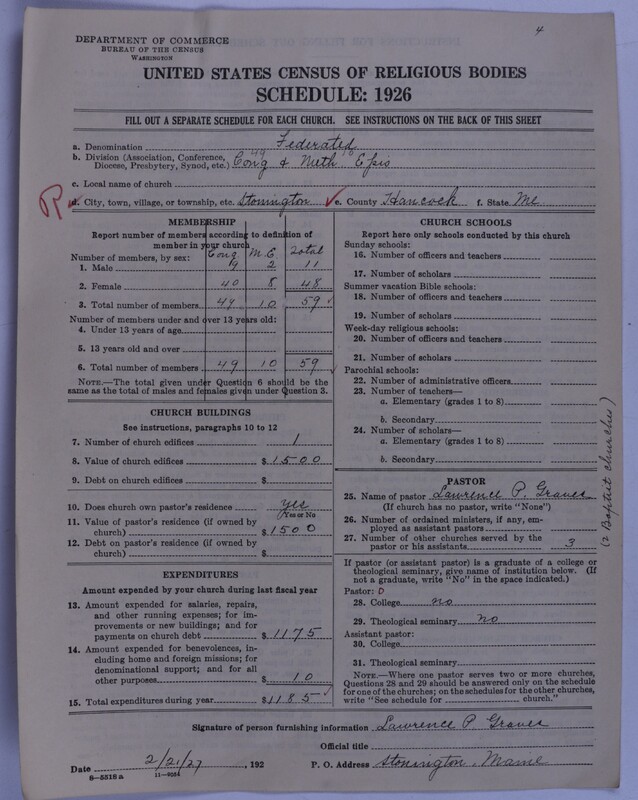 4
DEPARTMENT OF COMMERCE
BUREAU OF THE CENSUS
WASHINGTON
UNITED STATES CENSUS OF RELIGIOUS BODIES
SCHEDULE: 1926
FILL OUT A SEPARATE SCHEDULE FOR EACH CHURCH. SEE INSTRUCTIONS ON THE BACK OF THIS SHEET
a. Denomination Federated
b. Division (Association, Conference, Diocese, Presbytery, Synod, etc.) Cong 49 & Meth 10 Epis
c. Local name of church
R d. City, town, village, or township, etc. Stonington e. County Hancock f. State Me
MEMBERSHIP
Report number of members according to definition of
member in your church
Cong M.E. Total
Number of members, by sex:
1. Male 9 2 11
2. Female 40 8 48
3. Total number of members 49 10 59
Number of members under and over 13 years old:
4. Under 13 years of age
5. 13 years old and over
6. Total number of members 49 10 59
NOTE.—The total given under Question 6 should be the
same as the total of males and females given under Question 3.
CHURCH BUILDINGS
See instructions, paragraphs 10 to 12
7. Number of church edifices 1
8. Value of church edifices $ 1500
9. Debt on church edifices $
10. Does church own pastor's residence yes
(Yes or No)
11. Value of pastor's residence (if owned by
church) $ 1500
12. Debt on pastor's residence (if owned by
church) $
EXPENDITURES
Amount expended by your church during last fiscal year
13. Amount expended for salaries, repairs,
and other running expenses; for im-
provements or new buildings; and for
payments on church debt $ 1175
14. Amount expended for benevolences, in-
cluding home and foreign missions; for
denominational support; and for all
other purposes $ 10
15. Total expenditures during year $ 1185
CHURCH SCHOOLS
Report here only schools conducted by this church
Sunday schools:
16. Number of officers and teachers
17. Number of scholars
Summer vacation Bible schools:
18. Number of officers and teachers
19. Number of scholars
Week-day religious schools:
20. Number of officers and teachers
21. Number of scholars
Parochial schools:
22. Number of administrative officers
23. Number of teachers—
a. Elementary (grades 1 to 8)
b. Secondary
24. Number of scholars—
a. Elementary (grades 1 to 8)
b. Secondary
PASTOR
25. Name of pastor Lawrence P. Graves
(If church has no pastor, write "None")
26. Number of ordained ministers, if any, em-
ployed as assistant pastors
27. Number of other churches served by the
pastor or his assistants 3
(2 Baptist churches)
If pastor (or assistant pastor) is a graduate of a college or
theological seminary, give name of institution below. (If
not a graduate, write "No" in the space indicated.)
Pastor: 0
28. College no
29. Theological seminary no
Assistant pastor:
30. College
31. Theological seminary
NOTE.—Where one pastor serves two or more churches,
Questions 28 and 29 should be answered only on the schedule
for one of the churches; on the schedules for the other churches,
write "See schedule for church."
Signature of person furnishing information Lawrence P Graves
Official title
Date 2/21/27, 192 P. O. Address Stonington, Maine
8—5518 a